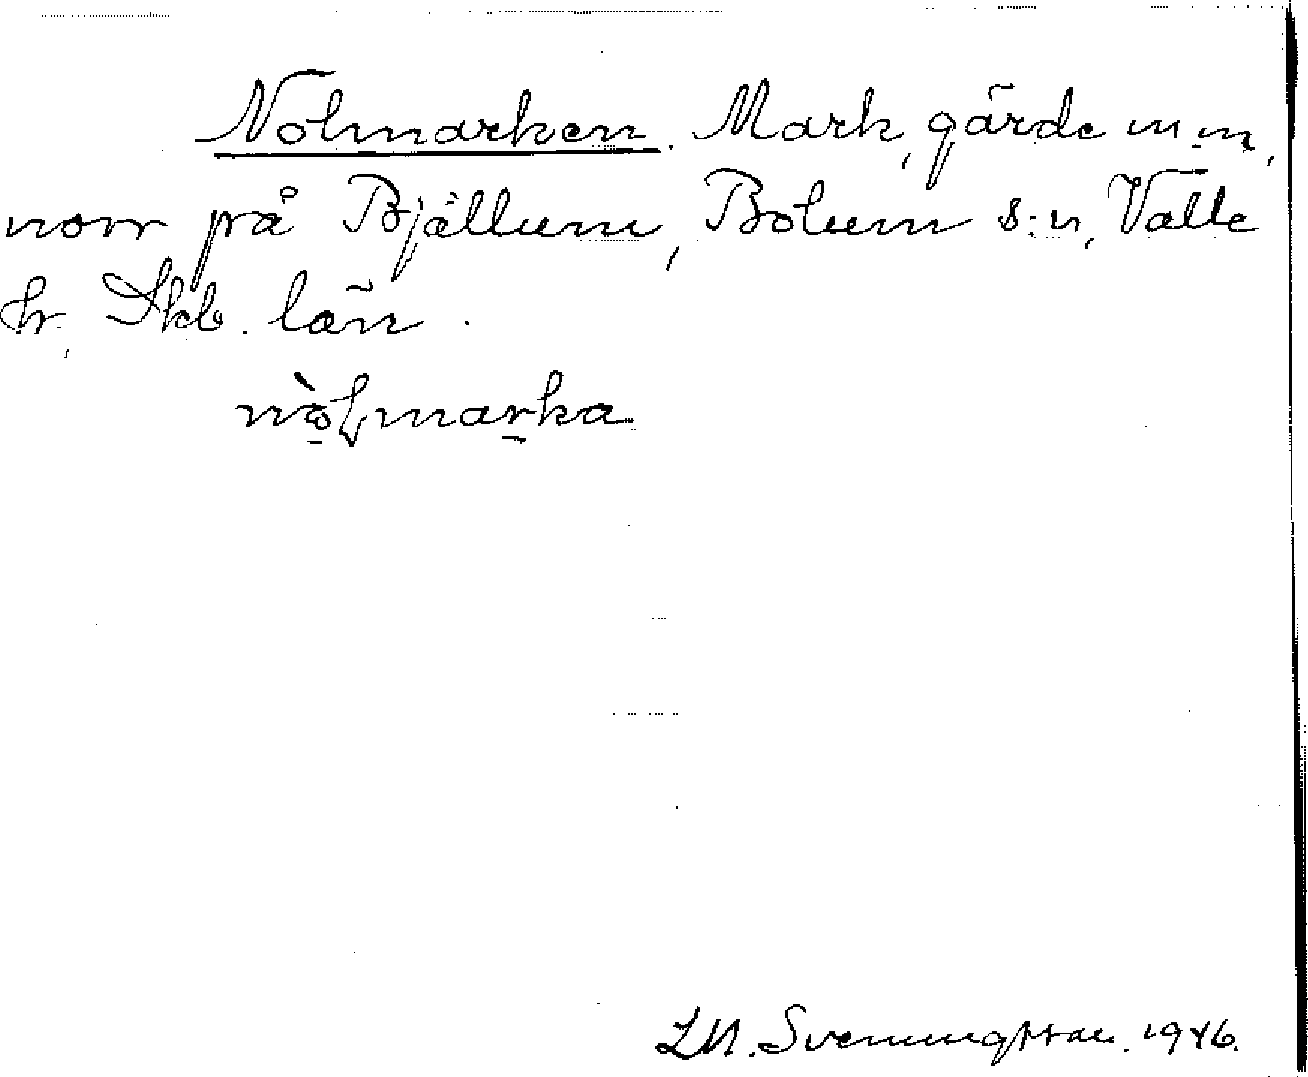 Nolmarken. Mark, gärde m.m,
norr på Bjällum, Bolum s:n, Valle
hr, Skb. län.
nòlmarka
L.M. Svenungsson. 1946.